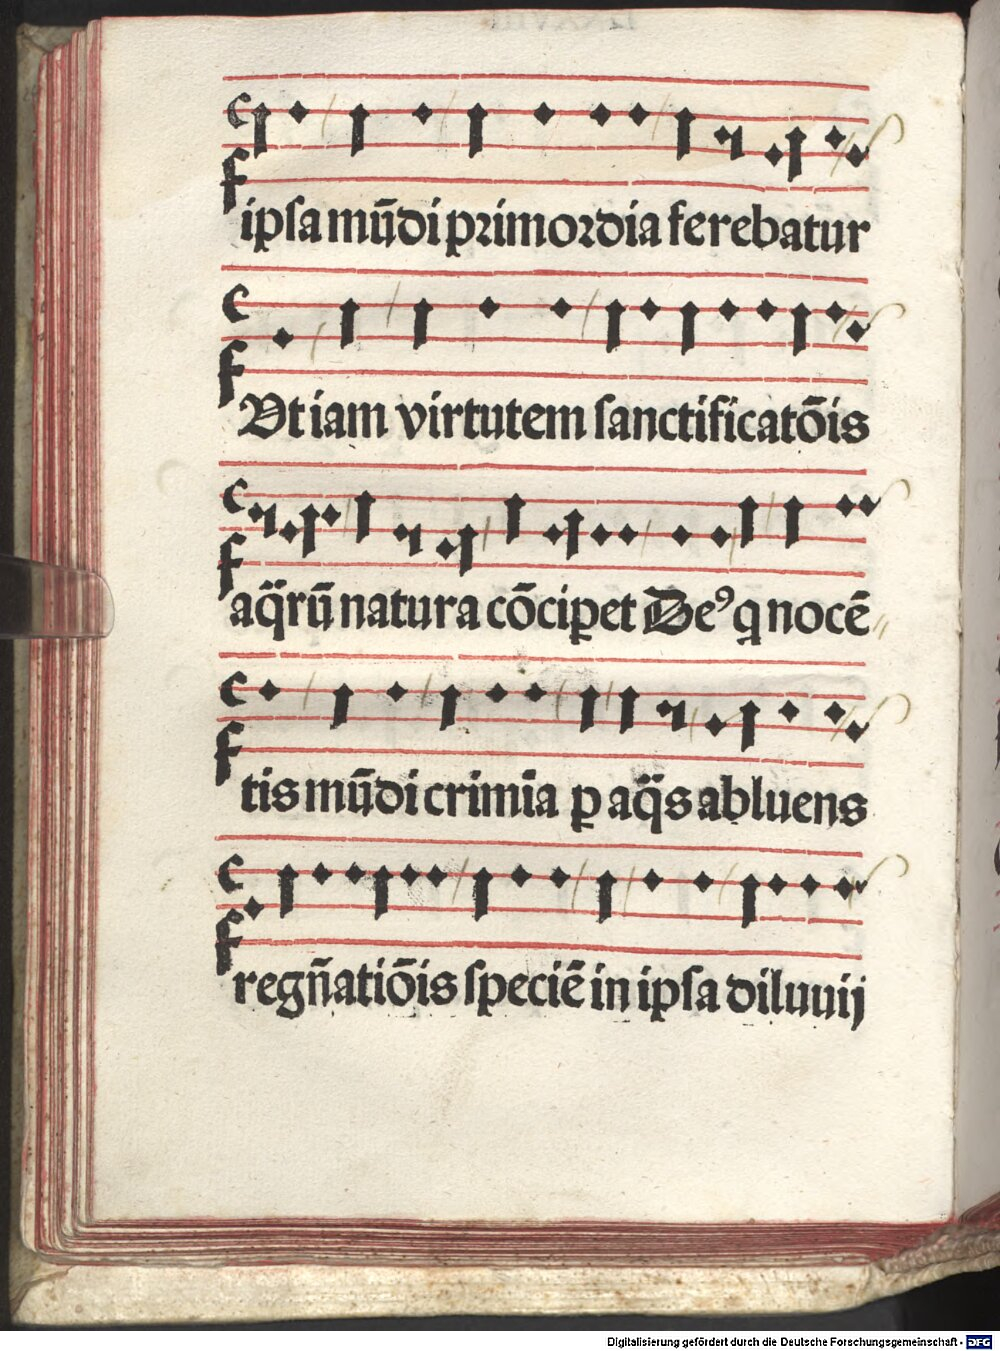 ipsa mūdi primordia ferebatur
Vt iam virtutem sanctificatōis
aq̃rū natura cōciꝑet De⁹ q nocē
tis mūdi crimīa ꝑ aq̃s abluens
regñatiōis speciē in ipsa diluuij
Digitalisierung gefördert durch die Deutsche Forschungsgemeinschaft - DFG